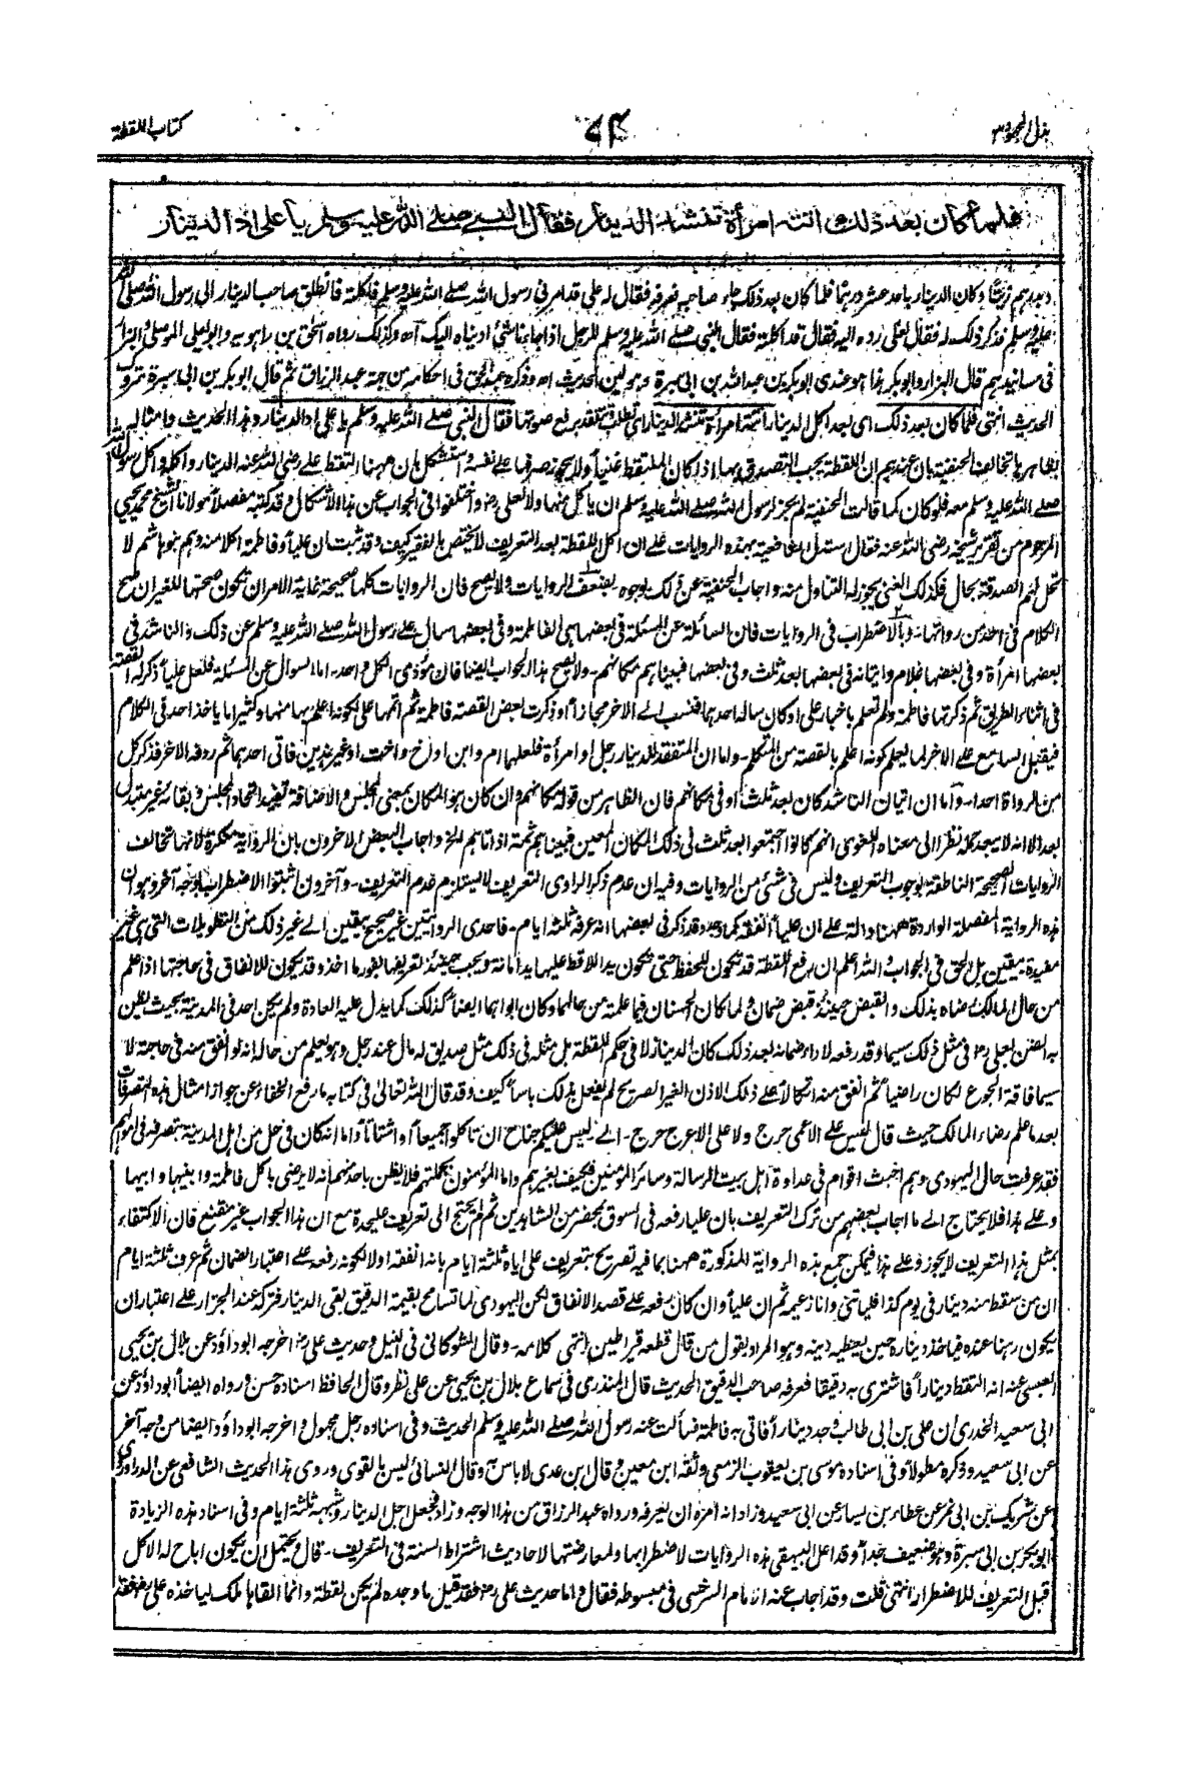 بذل المجهود ٣
٨٤
كتاب اللقطة
فلما كان بعد ذلك اتته امرأة تنشد الدينار فقال النبي صلے الله عليه وسلم يا علي اد الدينار
وكان الدينار باحد عشر درهما فلما كان بعد ذلك جاء صاحبه فعرفه فقال له علي قد امرني رسول الله صلے الله عليه وسلم فاكلته فانطلق صاحب الدينار الى رسول الله صلى الله
عليه وسلم فذكر ذلك له فقال لعلي رده اليه فقال قد اكلته فقال النبي صلے الله عليه وسلم للرجل اذا جاءنا شئ اديناه اليك آه وكذلك رواه اسحق بن راهويه وابو يعلى الموصلي والبزار
في مسانيدهم قال البزار وابو بكر هذا هو عندي ابو بكر بن عبد الله بن ابي سبرة وهو لين الحديث اه وذكره عبد الحق في احكامه من جهة عبد الرزاق ثم قال ابو بكر بن ابي سبرة متروك
الحديث انتهى فلما كان بعد ذلك اى بعد اكل الدينار اتته امرأة تنشد الدينار اى تطلب برفع صوتها فقال النبي صلے الله عليه وسلم يا علي اد الدينار وهذا الحديث وامثاله
بظاهرها تخالف الحنفية بان عندهم ان اللقطة يجب التصدق بها اذا كان الملتقط غنيا ولا يجوز صرفها على نفسه واستشكل بان ههنا التقط علي رضى الله عنه الدينار واكله واكل رسول الله
صلے الله عليه وسلم معه فلو كان كما قالت الحنفية لم يجز لرسول الله صلے الله عليه وسلم ان ياكل منها ولا لعلي رض واختلفوا في الجواب عن هذا الاشكال وقد كتبه مفصلا مولانا الشيخ محمد يحيي
المرحوم من تقرير شيخه رضى الله عنه فقال استدل الشافعية بهذه الروايات على ان اكل اللقطة بعد التعريف لا يختص بالفقير كيف وقد ثبت ان عليا وفاطمة اكلا منه وهم بنو هاشم لا
تحل لهم الصدقة بحال فكذلك الغني يجوز له التناول منه واجاب الحنفية عن ذلك بوجوه بضعف الروايات ولا يصح فان الروايات كلها صحيحة غاية الامر ان تكون صحتها للغير ان صح
الكلام في احد من رواتها وبالاضطراب في الروايات فان السائلة عن المسئلة في بعضها هي الفاطمة وفي بعضها سأل علي رسول الله صلے الله عليه وسلم عن ذلك والناشد في
بعضها امرأة وفي بعضها غلام واتيانه في بعضها بعد ثلث وفي بعضها فبينا هم مكانهم ـ ولا يصح هذا الجواب ايضا فان مؤدى الكل واحد ـ اما السؤال عن المسئلة فلعل عليا ذكر له القصة
في اثناء الطريق ثم ذكرتها فاطمة ولم تعلم باخبار علي او كان سأله احدهما فنسب الے الآخر مجازا او ذكرت بعض القصة فاطمة ثم اتمها علي لكونه اعلم بها منها وكثيرا ما ياخذ احد في الكلام
فيقبل السامع على الاخر لما يعلم كونه اعلم بالقصة من المتكلم ـ واما ان المتفقد للدينار رجل او امرأة فلعلها ام وابن او اخ واخت او غير هذين فاتى احدهما ثم ردفه الاخر فذكر كل
من الرواة احدا ـ واما ان اتيان الناشد كان بعد ثلث او في مكانهم فان الظاهر من قوله مكانهم وان كان هو المكان بمعنى المجلس والاضافة تفيد اتحاد المجلس وبقائه غير متبدل
بعد الا انه لا يبعد حمله نظرا الى معناه اللغوى انهم كانوا اجتمعوا بعد ثلث في ذلك المكان المعين فبينا هم ثمة اذ اتاهم الخ واجاب البعض الاخرون بان الرواية منكرة لانها تخالف
الروايات الصحيحة الناطقة بوجوب التعريف وليس في شئ من الروايات وفيه ان عدم ذكر الراوى التعريف لا يستلزم عدم التعريف ـ وآخرون اثبتوا الاضطراب بوجه آخر وهو ان
هذه الرواية المفصلة الواردة ههنا دالة على ان عليا انفقه كما وجد وقد ذكر في بعضها انه عرفه ثلثة ايام ـ فاحدى الروايتين غير صحيح بيقين الے غير ذلك من التطويلات التي هي غير
مفيدة بيقين بل الحق في الجواب والله اعلم ان رفع اللقطة قد يكون للحفظ حتى تكون يد اللاقط عليها يد امانة ويجب حينئذ تعريفها بفور ما اخذ وقد يكون للانفاق في حاجتها اذا علم
من حال المالك رضاه بذلك والقبض حينئذ قبض ضمان ولما كان الحسنان فيما علمت من حالهما وكان ابواهما ايضا كذلك كما يدل عليه العادة ولم يكن احد في المدينة بحيث يظن
به الضن لعلي رض في مثل ذلك سيما وقد رفعه لاداء ضمانه بعد ذلك كان الدينار لا في حكم اللقطة بل مثله في ذلك مثل صديق له مال عند رجل وهو يعلم من حاله انه لو انفق منه في حاجته لا
سيما فاقة الجوع لكان راضيا ثم انفق منه اتكالا على ذلك الاذن الغير الصريح لم يفعل بذلك بأسا كيف وقد قال الله تعالى في كتابه ما رفع الخفاء عن جواز امثال هذه التصرفات
بعد ما علم رضاء المالك حيث قال ليس على الاعمى حرج ولا على الاعرج حرج ـ الے ـ ليس عليكم جناح ان تاكلوا جميعا او اشتاتا واما انه كان في حل من اهل المدينة بتصرفه في اموالهم
فقد عرفت حال اليهودى وهم اخبث اقوام في عداوة اهل بيت الرسالة وسائر المؤمنين فكيف بغيرهم واما المؤمنون بجملتهم فلا يظن باحد منهم انه لا يرضى باكل فاطمة وابنيها وابيها
وعلى هذا فلا يحتاج الے ما اجاب بعضهم من ترك التعريف بان عليا رفعه في السوق بمحضر من الشاهدين ثم لم يحتج الى تعريف عليحدة مع ان هذا الجواب غير مقنع فان الاكتفاء
بمثل هذا التعريف لا يجوز وعلى هذا فيمكن جمع هذه الرواية المذكورة ههنا بما فيه تصريح بتعريف علي اياه ثلثة ايام بانه انفقه اولا لكونه رفعه على اعتبار الضمان ثم عرف ثلثة ايام
ان من سقط منه دينار في يوم كذا فلياتني وانا زعيمه ثم ان عليا وان كان رفعه على قصد الانفاق لكن اليهودى لما تسامح بقيمة الدقيق بقى الدينار فتركه عند الجزار على اعتبار ان
يكون رهنا عنده فياخذ ديناره حين يعطيه دينه وهو المراد بقول من قال قطعه قيراطين انتهى كلامه ـ وقال الشوكاني في النيل وحديث علي رض اخرجه ابو داؤد عن بلال بن يحيى
العبسي عنه انه التقط دينارا فاشترى به دقيقا فعرفه صاحب الدقيق الحديث قال المنذرى في سماع بلال بن يحيى عن علي نظر وقال الحافظ اسناده حسن ورواه ايضا ابو داؤد عن
ابي سعيد الخدرى ان علي بن ابي طالب وجد دينارا فاتى به فاطمة فسألت عنه رسول الله صلے الله عليه وسلم الحديث وفي اسناده رجل مجهول واخرجه ابو داؤد ايضا من وجه آخر
عن ابي سعيد وذكره مطولا وفي اسناده موسى بن يعقوب الزمعي وثقه ابن معين وقال ابن عدى لا باس به وقال النسائي ليس بالقوى وروى هذا الحديث الشافعي عن الدراوردى
عن شريك بن ابي نمر عن عطاء بن يسار عن ابي سعيد وزاد انه امره ان يعرفه ورواه عبد الرزاق من هذا الوجه وزاد فجعل اجل الدينار وشبهه ثلثة ايام وفي اسناد هذه الزيادة
ابو بكر بن ابي سبرة وهو ضعيف جدا وقد اعل البيهقي هذه الروايات لاضطرابها ولمعارضتها لاحاديث اشتراط السنة في التعريف ـ قال ويحتمل ان يكون اباح له الاكل
قبل التعريف للاضطرار انتهى قلت وقد اجاب عنه الامام السرخسي في مبسوطه فقال واما حديث علي رض فقد قيل ما وجده لم يكن لقطة وانما القاها ملك لياخذه علي رض فقد